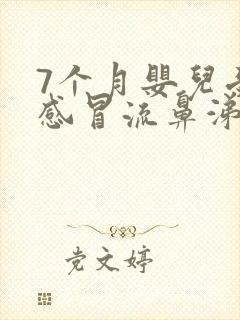 7个月嬰兒
感冒流鼻涕
党文婷